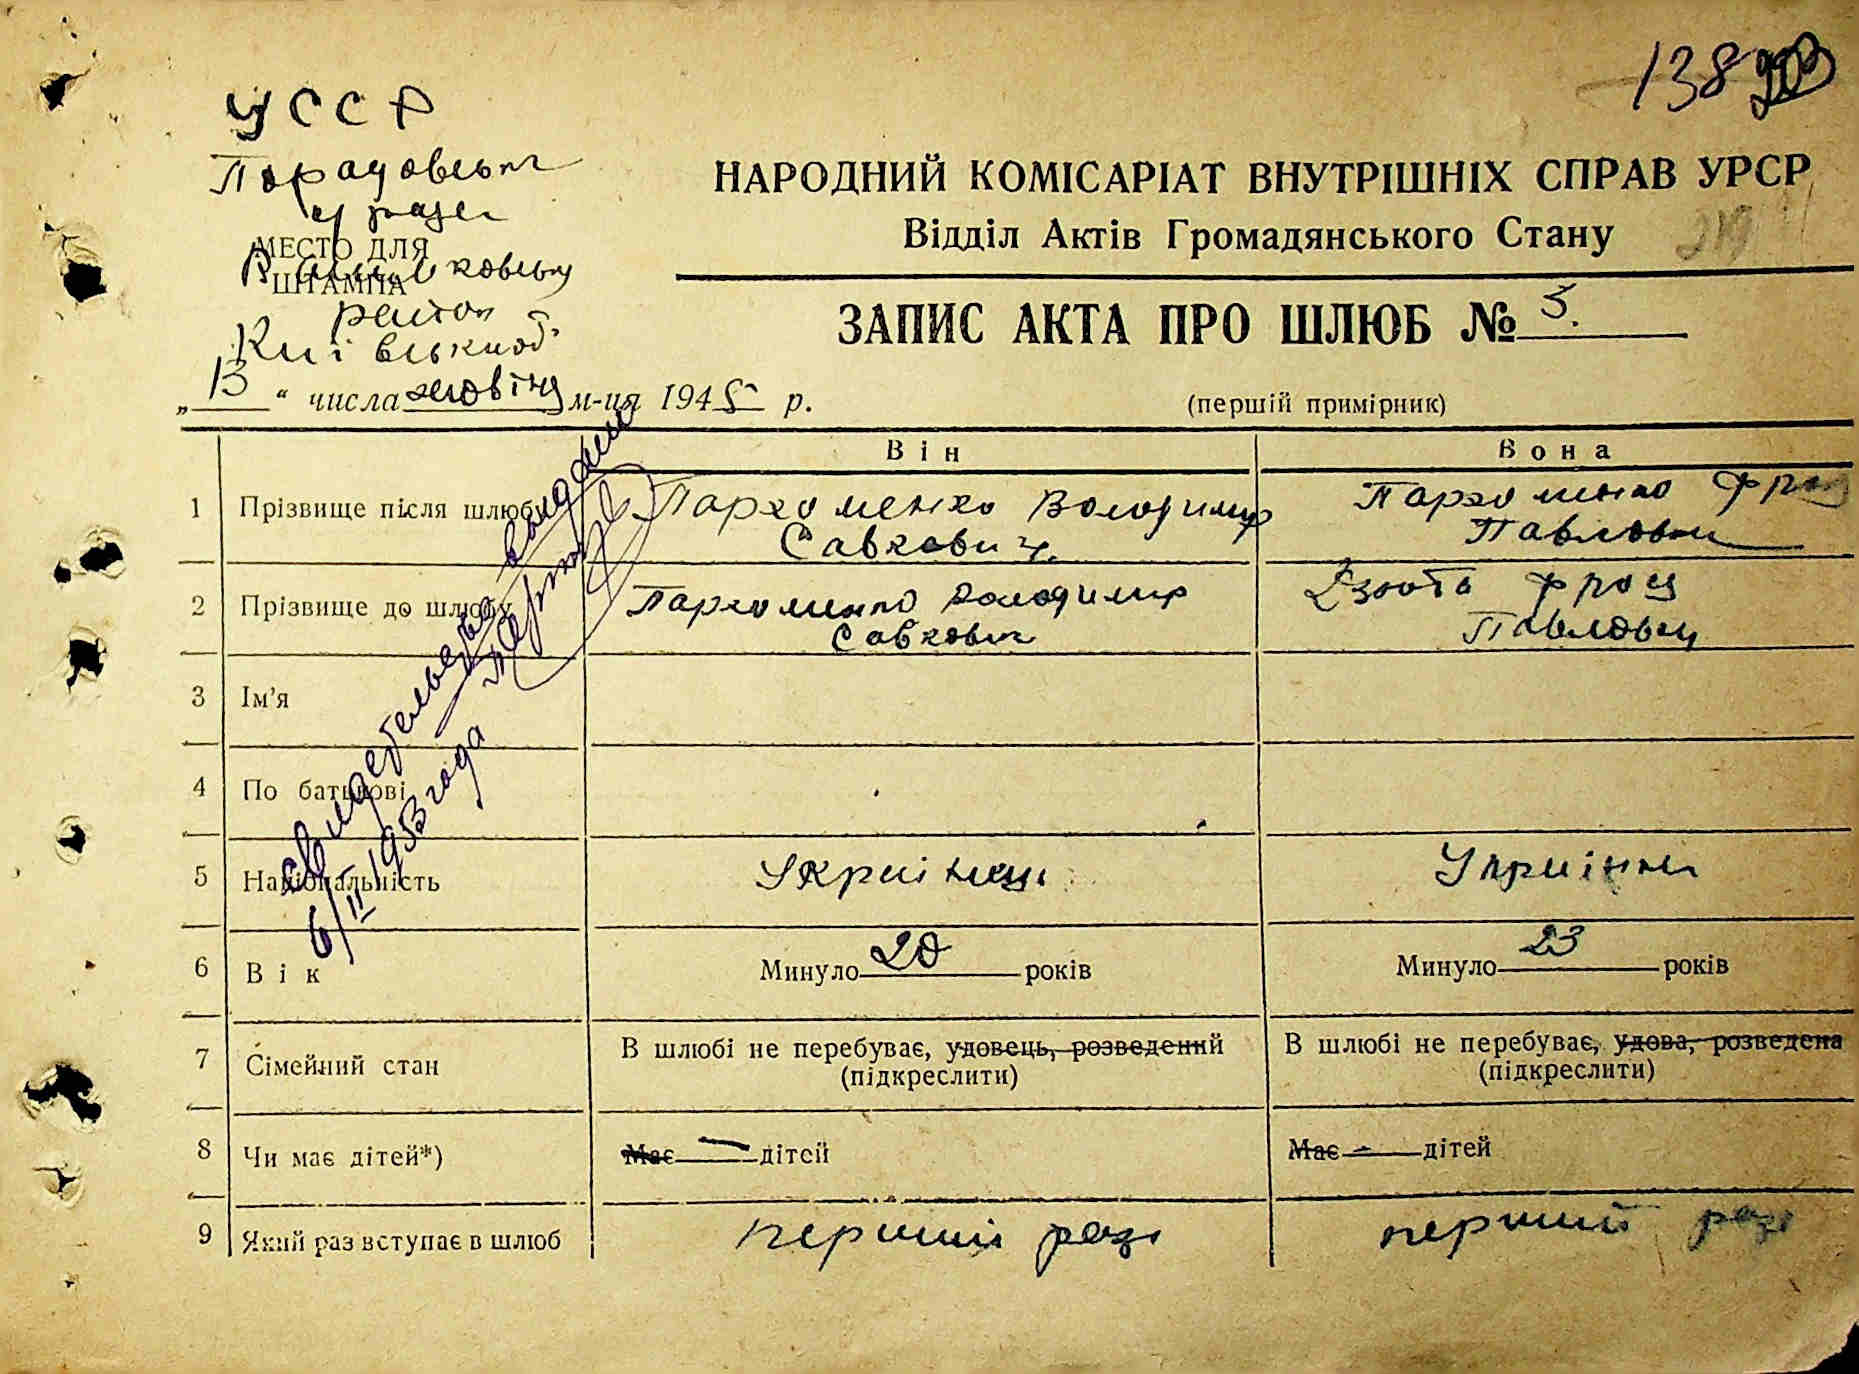 138
УССР
НАРОДНИЙ КОМІСАРІАТ ВНУТРІШНІХ СПРАВ УРСР
Відділ Актів Громадянського Стану
219
МЕСТО ДЛЯ
ШТАМПА
район
ЗАПИС АКТА ПРО ШЛЮБ № 5.
„13“ числа жовтня м-ця 1945 р.
(першій примірник)
Він
Вона
1 Прізвище після шлюбу Пархоменко Володимир
Савкович
Пархоменко
Павловна
2 Прізвище до шлюбу Пархоменко Володимир
Савкович
Дзюба
Павловна
3 Ім'я
4 По батькові
5 Національність Українець Українка
6 Вік Минуло 20 років Минуло 23 років
7 Сімейний стан В шлюбі не перебуває, удовець, розведений
(підкреслити)
В шлюбі не перебуває, удова, розведена
(підкреслити)
8 Чи має дітей*) Має — дітей Має - дітей
9 Який раз вступає в шлюб перший раз перший раз
свидетельство выдано
6/II 1953 года